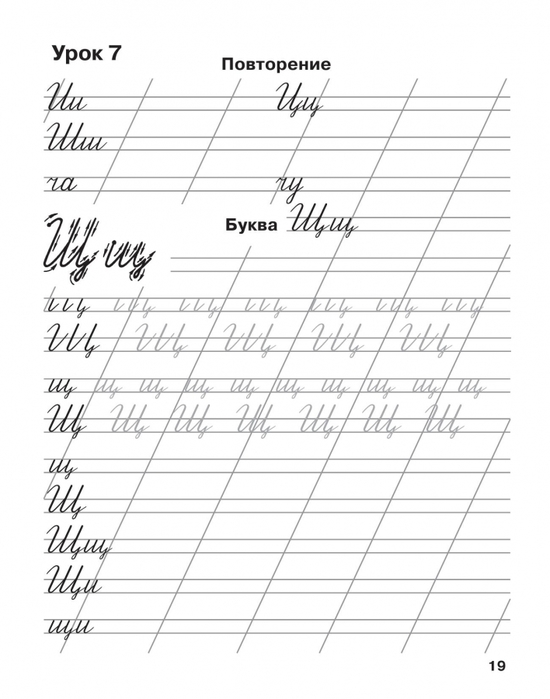 Урок 7
Повторение
Ии Цц
Шш
ча чу
Буква Щщ
Щ щ
щ щ щ щ щ щ щ щ щ щ
Щ Щ Щ Щ Щ Щ Щ
щ
Щ
Щщ
Щи
щи
19